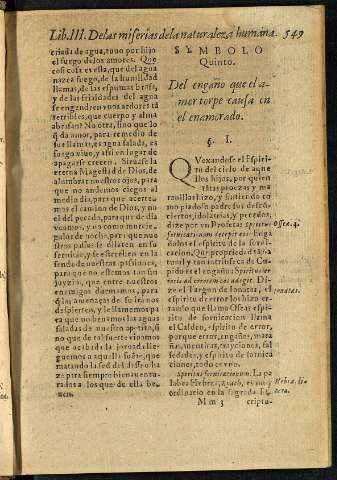 Lib.III. De las miserias de la naturaleza humana. 549
criada de agua, tuuo por hijo
el fuego de los amores. Que
cosa es esta, que del agua
nazca fuego, de la humildad
llamas, de las espumas brasas,
y de las frialdades del agua
se engendren vnos ardores tã
terribles, que cuerpo y alma
abrasan? No otra, sino que lo
q̃ da amor, para remedio de
sus llamas, es agua salada, es
fuego viuo, y assi en lugar de
apagarse crecen. Siruase la
eterna Magestad de Dios, de
alumbrar nuestros ojos, para
que no andemos ciegos al
medio dia, para que acerte-
mos el camino de Dios, y no
el del pecado, para que de dia
veamos, y no como los mur-
cielagos, de noche: para que nue
stros passos se dilaten en su
seruicio, y se estrechen en la
senda de nuestras passiones,
para que no estemos tan sin
juyzio, que entre nuestros
enemigos durmamos, para
q̃ las amenaças de su ira nos
despierten, y le llamemos pa
ra que no beuamos las aguas
saladas de nuestro apetito, si
no que de tal suerte viuamos
que acabada la jornada llegue-
mos a aquella fuẽte, que
matando la sed del desseo ha
ze para siempre bienauentu-
rados a los que de ella be-
ben.
SYMBOLO
Quinto.
Del engaño que el a-
mor torpe causa en
el enamorado.
§. I.
Quexandose el Espiri-
tu del cielo de aque
llos hijos, por quien
tãtas proezas y ma
rauillas hizo, y sintiendo co
mo piadoso padre sus desac-
ciertos, idolatrias, y pecados,
dize por vn Profeta: Spiritus Osee. 4.
fornicationum decepit eos. En ga
ñolos el espiritu de la forni-
cacion. Que propiedad tã na
tural y tan intrinseca de Cu-
pido es el engaño: Spiritus er-
roris ad errorem eos adegit. Di
ze el Targon de Ionatas, el Ionatas.
espiritu de error los hizo er-
rar: lo que llamo Oseas espiri
tu de fornicacion llama
el Caldeo, espiritu de error,
porque errores, engaños, mara
ñas, mentiras, trayciones, fal
sedades, y espiritu de fornica
ciones, todo es vno.
Spiritus fornicationum. La pa
labra Hebrea, Ruach, es muy Hebra. li-
ordinario en la sagrada El tera.
Mm 3 criptu-